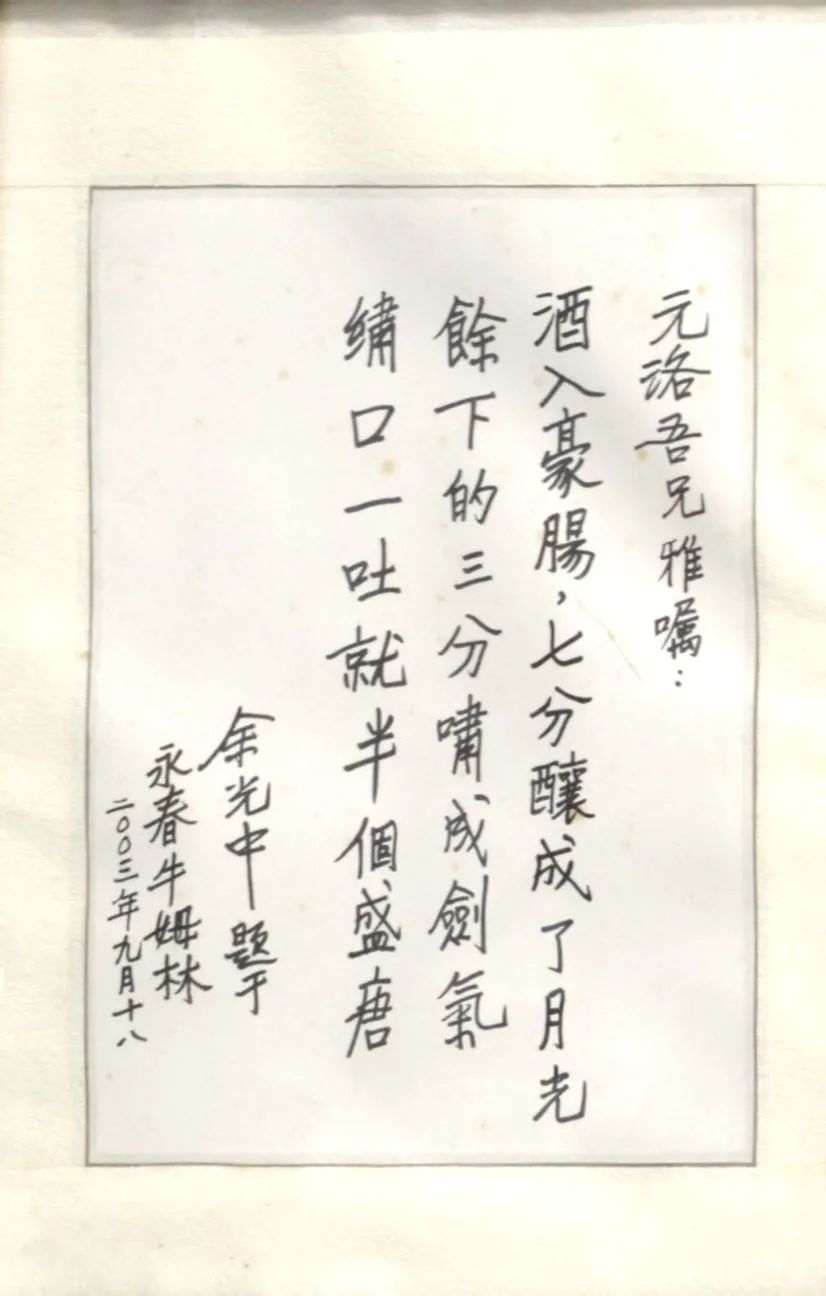 元洛吾兄雅嘱：
酒入豪腸，七分釀成了月光
餘下的三分嘯成劍氣
繡口一吐就半個盛唐
余光中題于
永春牛姆林
二〇〇三年九月十八